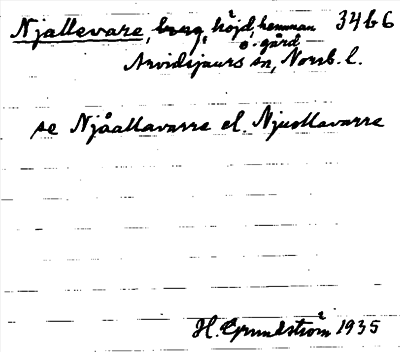 Njallevare, berg, höjd, hemman 34b6
o. gård
Arvidsjaurs sn, Norrb. l.
se Njåallavarre el. Njuollavarre
H. Grundström 1935